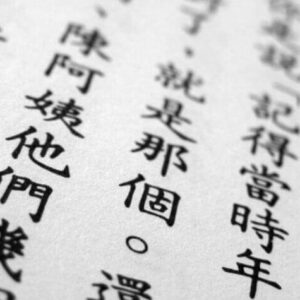 你是說「記得當時年
了，就是那個。還
、陳阿姨他們幾